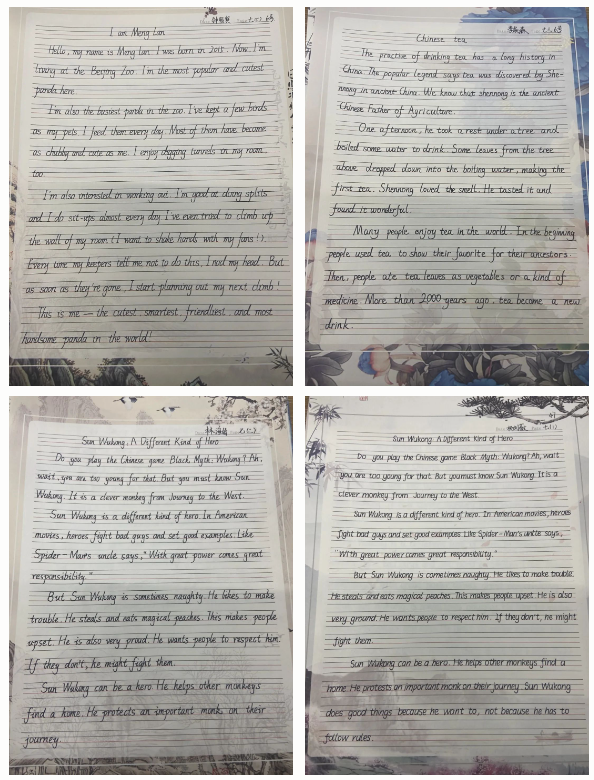 I am Meng Lan
Hello, my name is Meng Lan. I was born in 2015. Now I'm
living at the Beijing Zoo. I'm the most popular and cutest
panda here.
I'm also the busiest panda in the zoo. I've kept a few birds
as my pets. I feed them every day. Most of them have become
as chubby and cute as me. I enjoy digging tunnels in my room,
too.
I'm also interested in working out. I'm good at doing splits
and I do sit-ups almost every day. I've even tried to climb up
the wall of my room. (I want to shake hands with my fans!)
Every time my keepers tell me not to do this, I nod my head. But
as soon as they're gone, I start planning out my next climb!
This is me — the cutest smartest friendliest, and most
handsome panda in the world!
Chinese tea
The practice of drinking tea has a long history in
China. The popular legend says tea was discovered by She-
nnong in ancient China. We know that shennong is the ancient
Chinese Father of Agriculture.
One afternoon, he took a rest under a tree and
boiled some water to drink. Some leaves from the tree
above dropped down into the boiling water, making the
first tea. Shennong loved the smell. He tasted it and
found it wonderful.
Many people enjoy tea in the world. In the beginning
people used tea to show their favorite for their ancestors.
Then, people ate tea leaves as vegetables or a kind of
medicine. More than 2000 years ago, tea become a new
drink.
Sun Wukong, A Different Kind of Hero
Do you play the Chinese game Black Myth: Wukong? Ah,
wait, you are too young for that. But you must know Sun
Wukong. It is a clever monkey from Journey to the West.
Sun Wukong is a different kind of hero. In American
movies, heroes fight bad guys and set good examples. Like
Spider-Man's uncle says, "With great power comes great
responsibility."
But Sun Wukong is sometimes naughty. He likes to make
trouble. He steals and eats magical peaches. This makes people
upset. He is also very proud. He wants people to respect him.
If they don't, he might fight them.
Sun Wukong can be a hero. He helps other monkeys
find a home. He protects an important monk on their
journey.
Sun Wukong. A Different Kind of Hero
Do you play the Chinese game Black Myth: Wukong? Ah, wait
you are too young for that. But you must know Sun Wukong. It is a
clever monkey from Journey to the West
Sun Wukong is a different kind of hero. In American movies, heroes
fight bad guys and set good examples. Like Spider-Man's uncle says,
"With great power comes great responsibility."
But Sun Wukong is sometimes naughty. He likes to make trouble.
He steals and eats magical peaches. This makes people upset. He is also
very ground. He wants people to respect him. If they don't, he might
fight them.
Sun Wukong can be a hero. He helps other monkeys find a
home. He protests an important monk on their journey. Sun Wukong
does good things because he want to, not because he has to
follow rules.